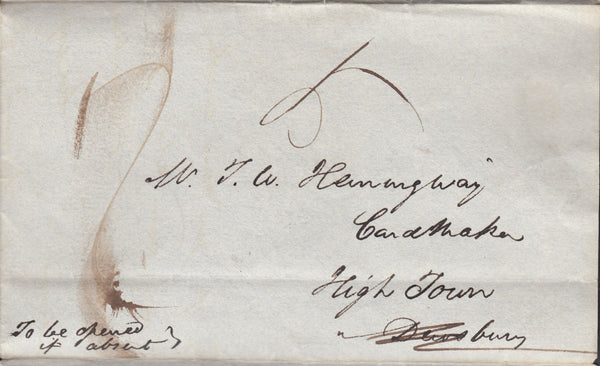 Mr. T. W. Hemingway
Cardmaker
High Town
Dewsbury
To be opened
if absent